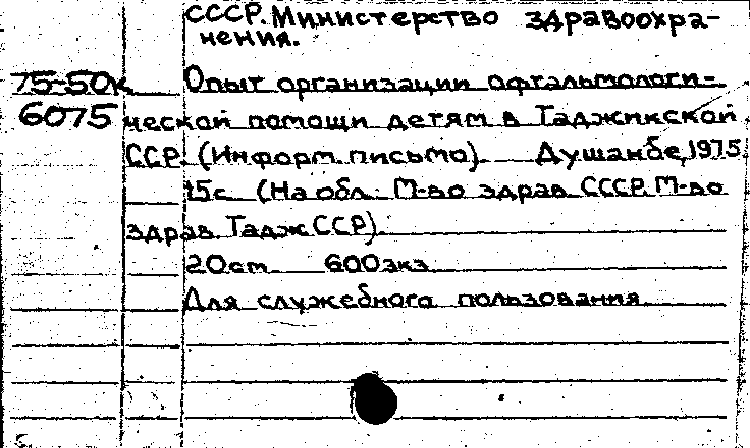 СССР. Министерство здравоохра-
нения.
75-50к Опыт организации офтальмологи-
6075 ческой помощи детям в Таджикской
ССР. (Информ. письмо). Душанбе, 1975
15с (На обл.: М-во здрав. СССР. М-во
здрав. Тадж ССР).
20см 600экз
Для служебного пользования